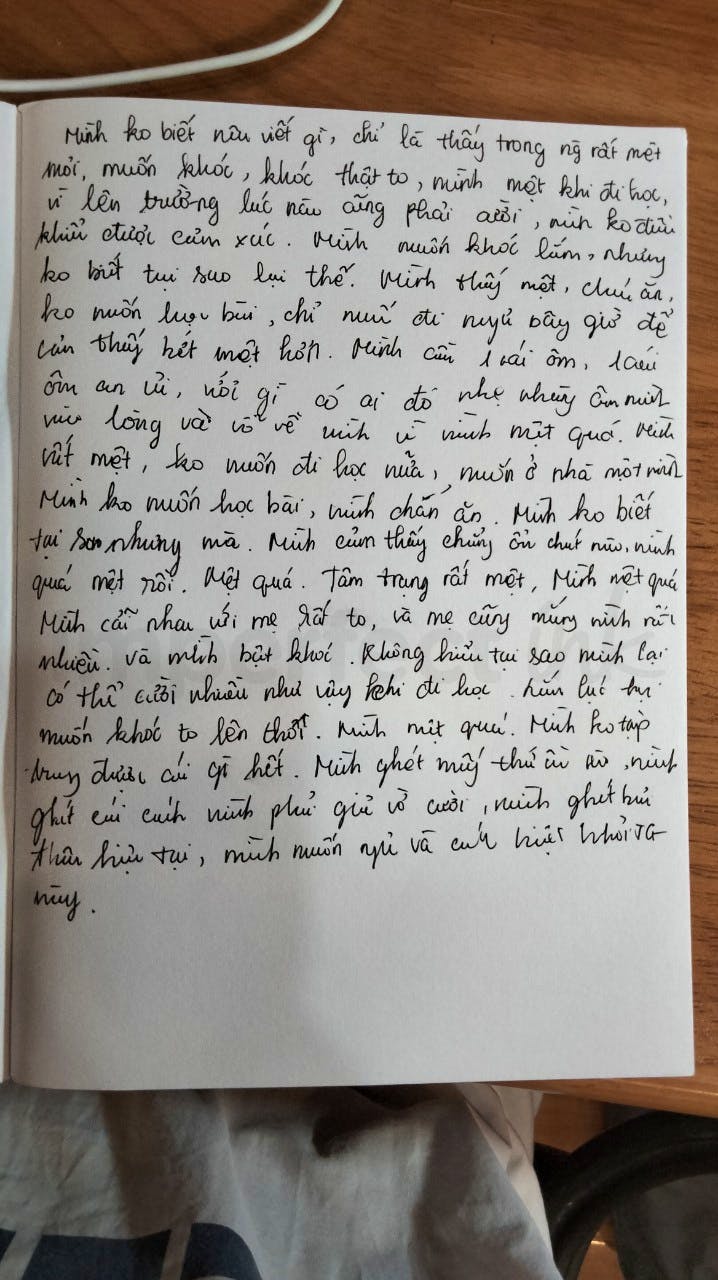 Mình ko biết nên viết gì, chỉ là thấy trong ng rất mệt
mỏi, muốn khóc, khóc thật to, mình mệt khi đi học,
vì lên trường lúc nào cũng phải cười, mình ko điều
khiển được cảm xúc. Mình muốn khóc lắm, nhưng
ko biết tại sao lại thế. Mình thấy mệt, chán ăn,
ko muốn học bài, chỉ muốn đi ngủ bây giờ để
cảm thấy hết mệt hơn. Mình cần 1 cái ôm, 1 cái
ôm an ủi, có ai đó nhẹ nhàng ôm mình
vào lòng và vỗ về mình vì mình mệt quá. Mình
rất mệt, ko muốn đi học nữa, muốn ở nhà một mình
Mình ko muốn học bài, mình chán ăn. Mình ko biết
tại sao nhưng mà. Mình cảm thấy chẳng ổn chút nào, mình
quá mệt rồi. Mệt quá. Tâm trạng rất mệt, Mình mệt quá
Mình cãi nhau với mẹ rất to, và mẹ cũng mắng mình rất
nhiều. và mình bật khóc. Không hiểu tại sao mình lại
có thể cười nhiều như vậy khi đi học lúc
muốn khóc to lên thôi. Mình mệt quá. Mình ko tập
trung được cái gì hết. Mình ghét mấy thứ ồn ào, mình
ghét cái cách mình phải giả vờ cười, mình ghét bản
thân hiện tại, mình muốn ngủ và biệt khỏi TG
này.